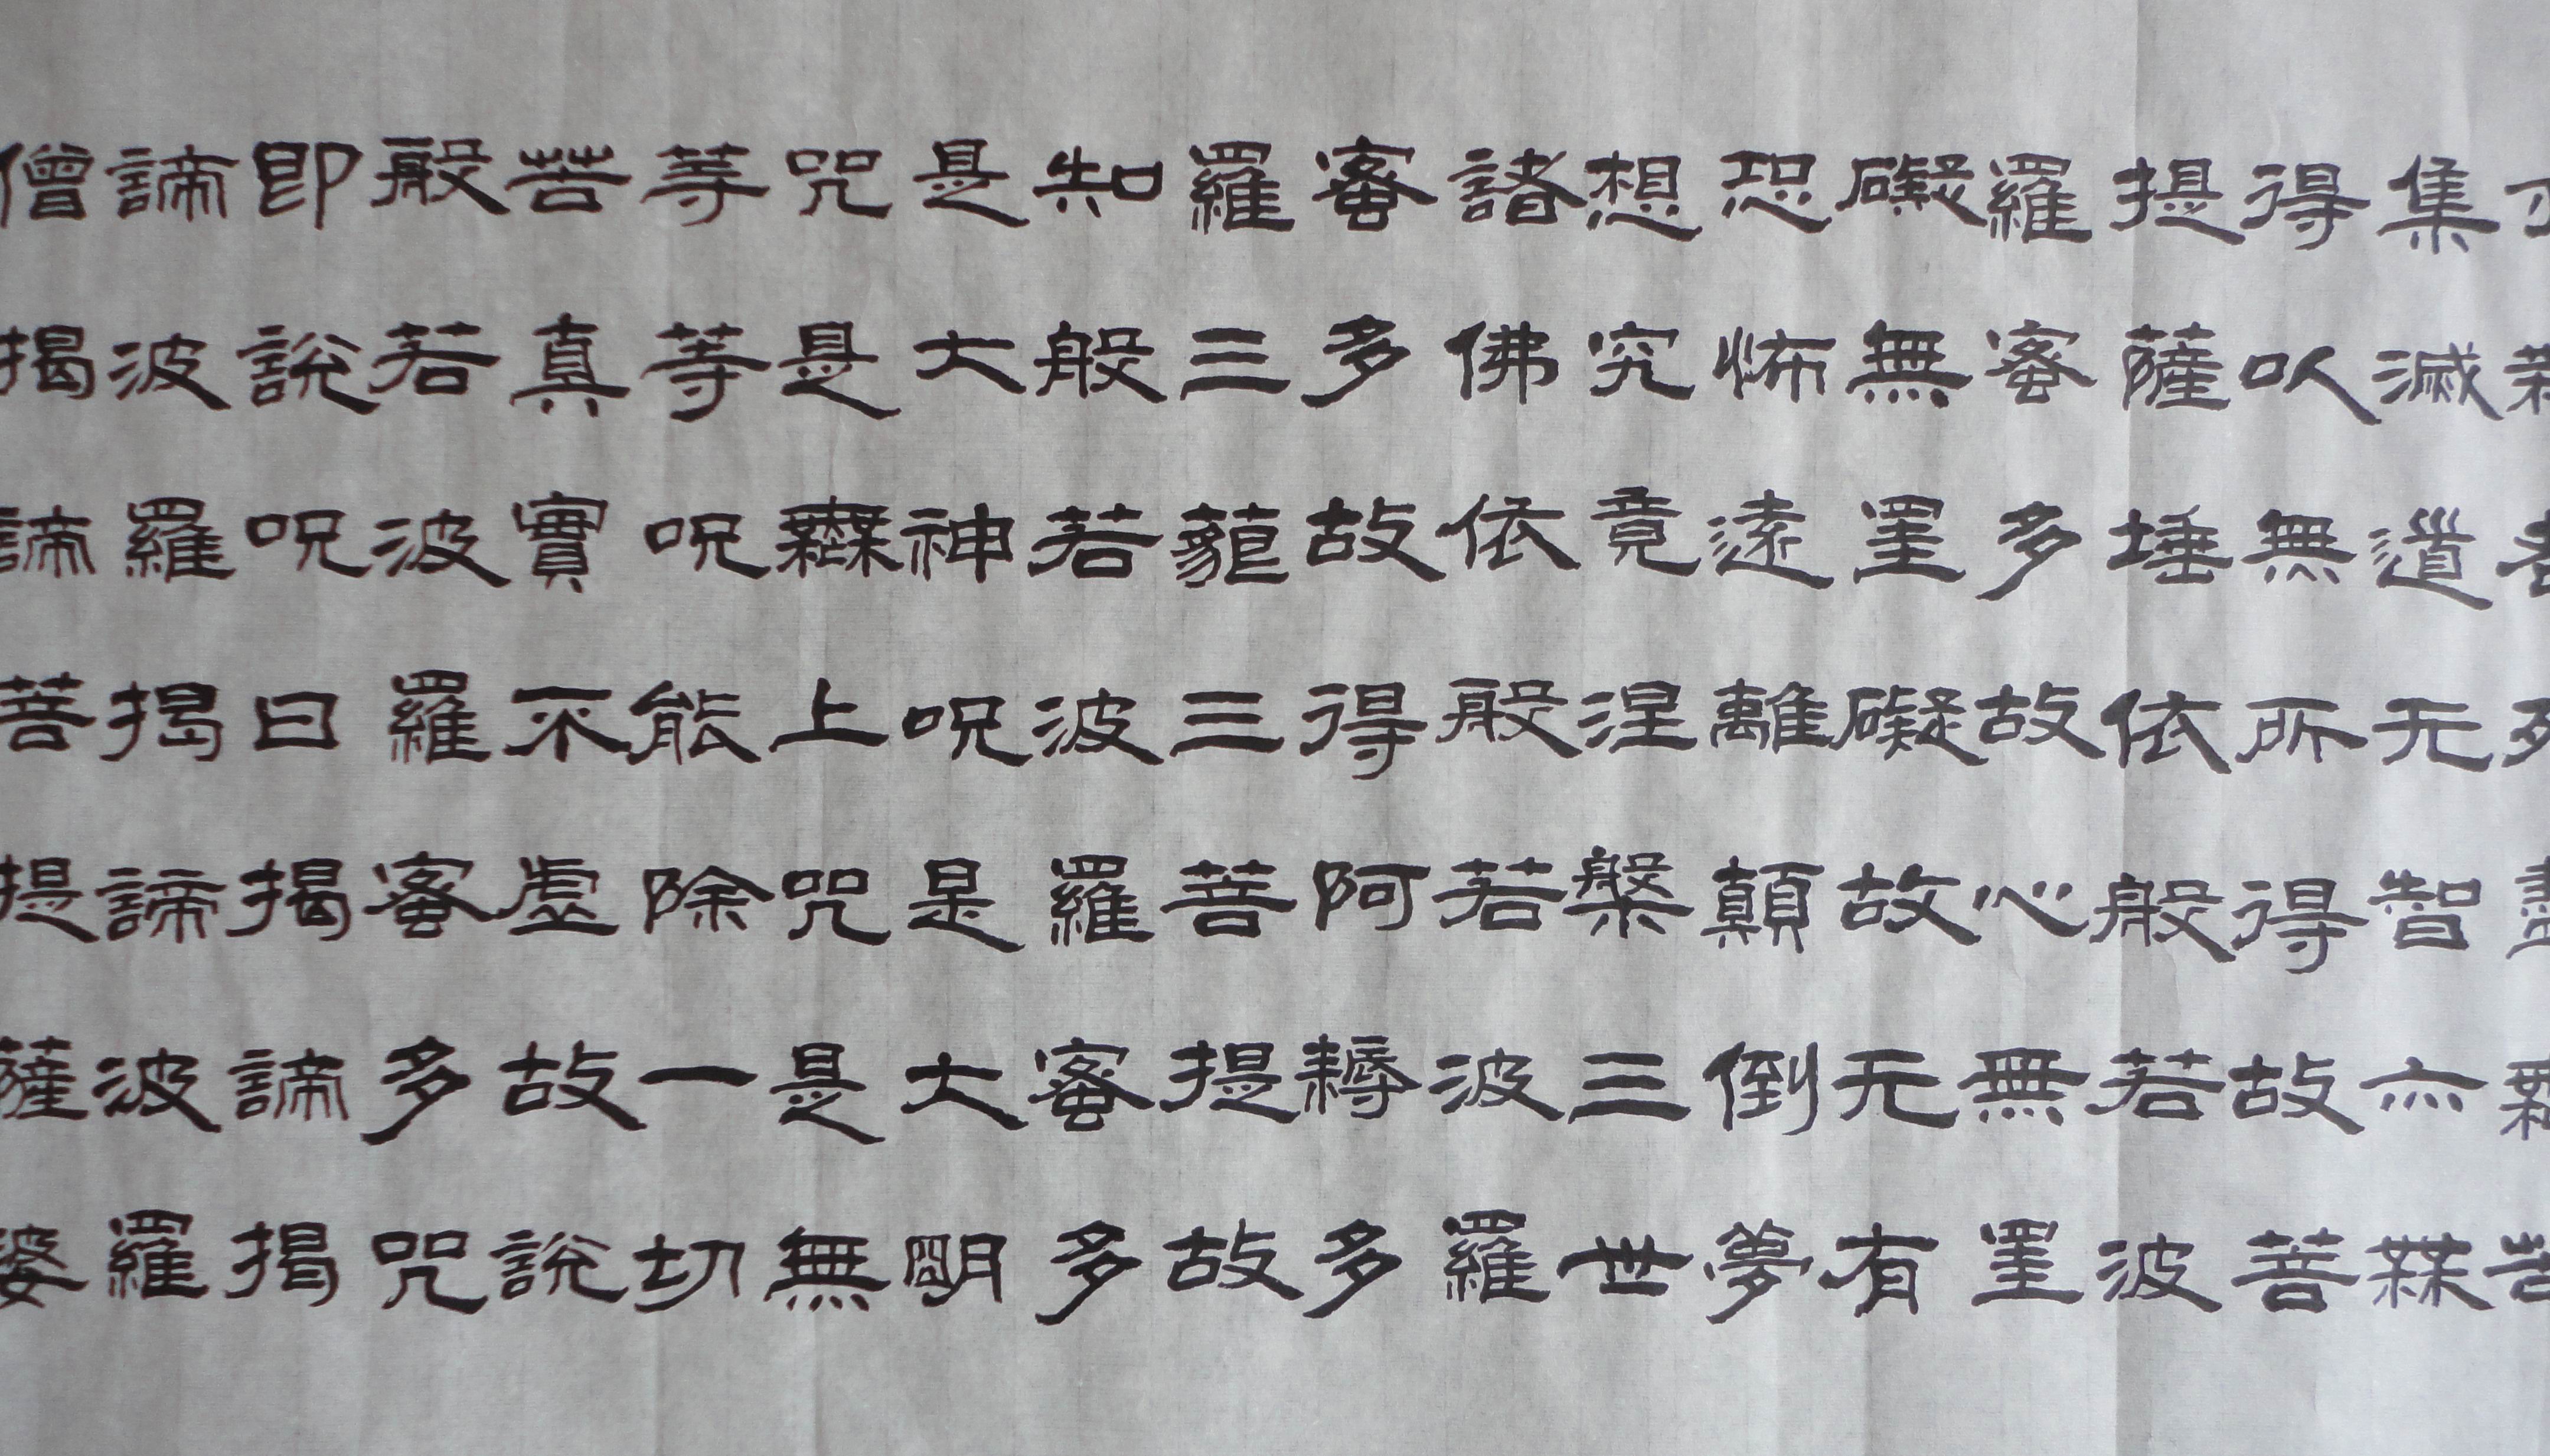 亦無老死盡無苦
集滅道无智亦無
得以無所得故菩
提薩埵依般若波
羅蜜多故心無罣
礙無罣礙故无有
恐怖遠離顛倒夢
想究竟涅槃三世
諸佛依般若波羅
蜜多故得阿耨多
羅三藐三菩提故
知般若波羅蜜多
是大神呪是大明
咒是無上咒是無
等等呪能除一切
苦真實不虛故說
般若波羅蜜多咒
即說呪曰揭諦揭
諦波羅揭諦波羅
僧揭諦菩提薩婆